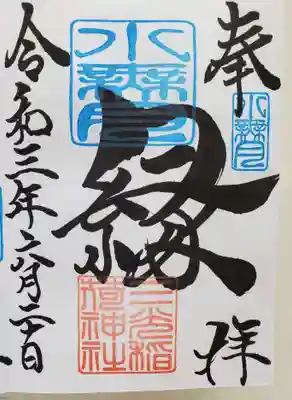 奉拝
水無月
水無月
縁
三光稲
荷神社
令和三年六月二十日